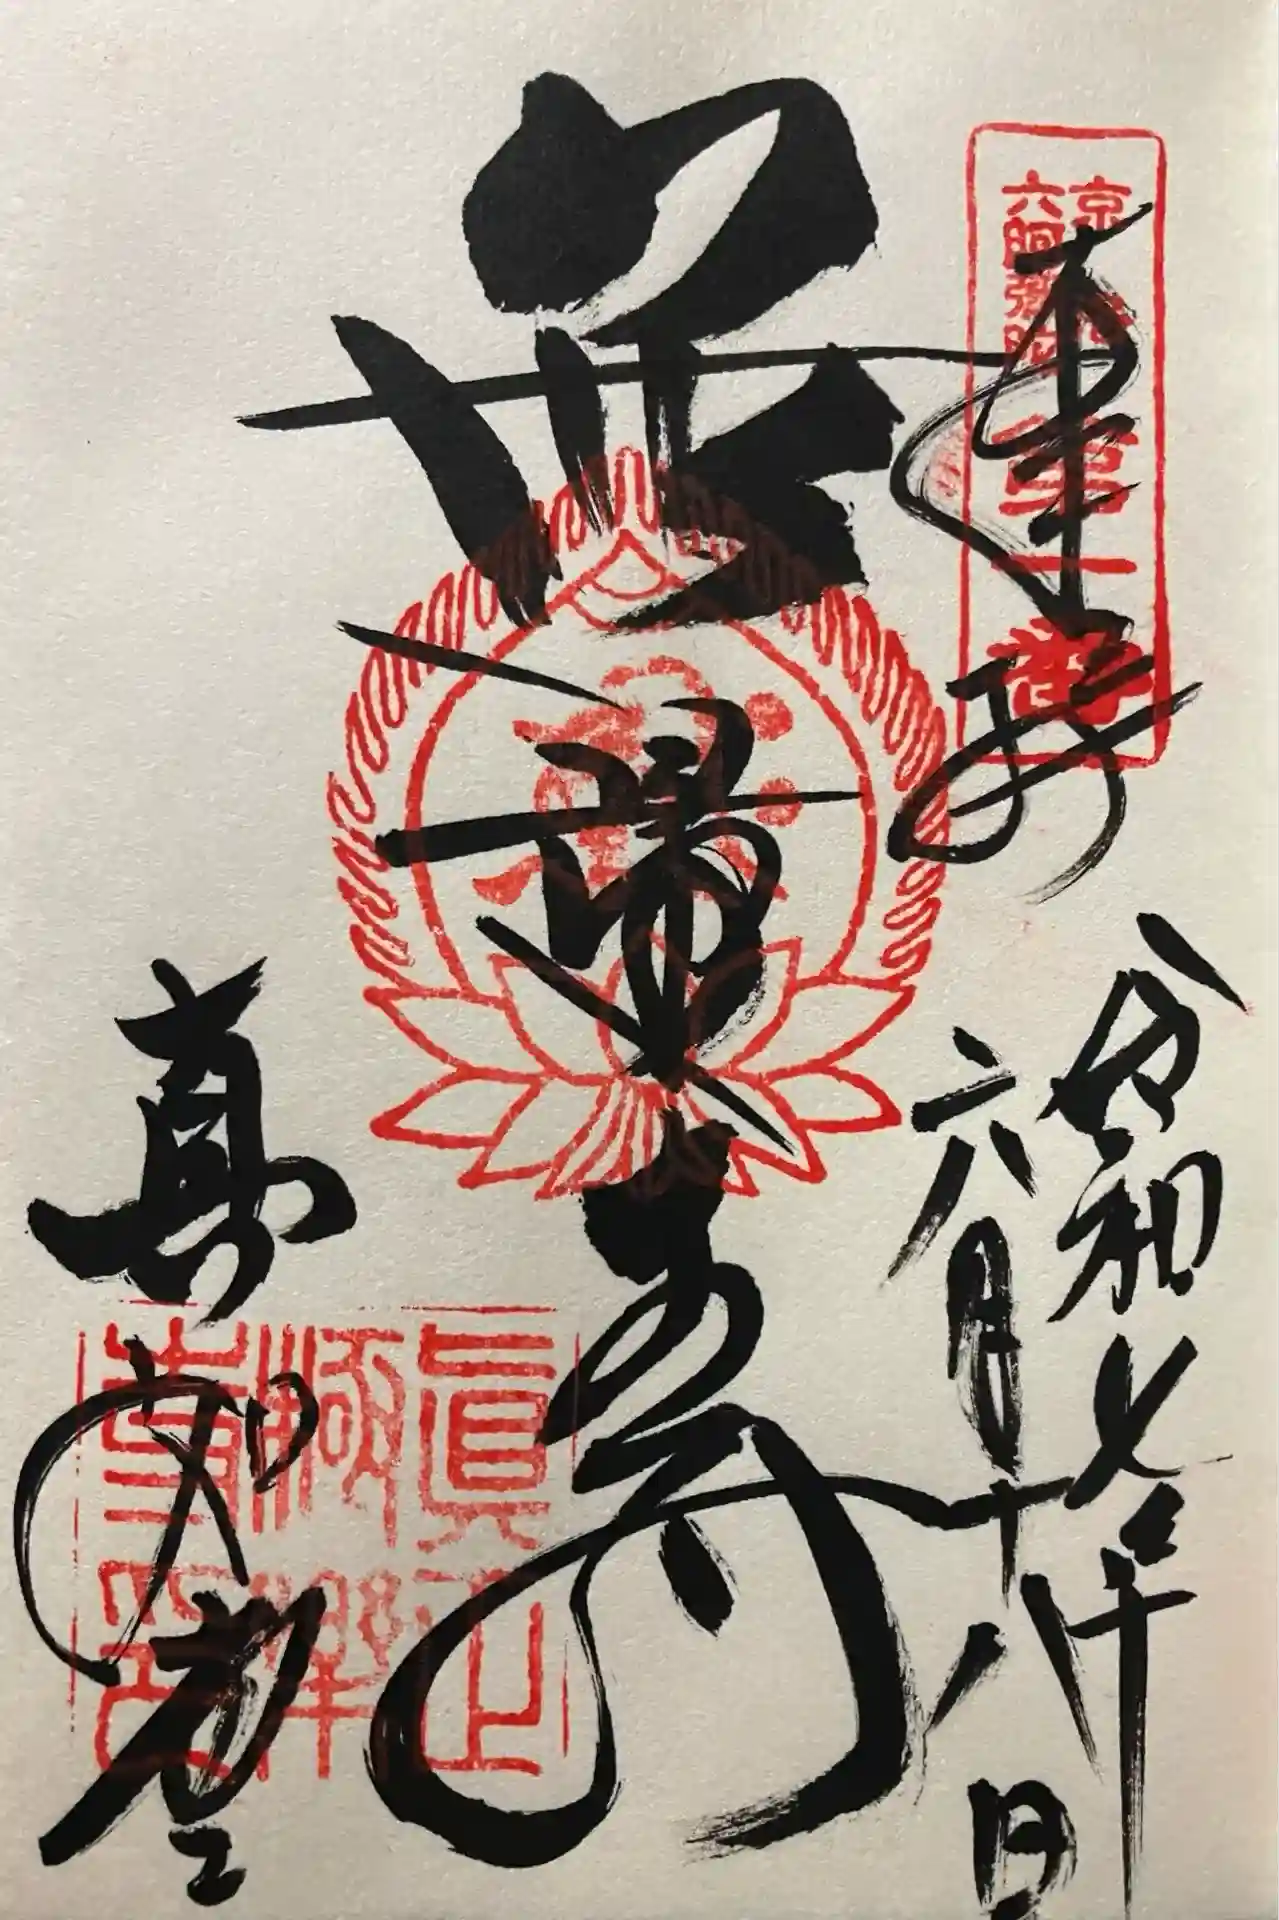 奉拝
京洛
六阿彌陀
第一番
令和七年
六月十八日
無量寿
真如堂
眞正
極樂
寺印